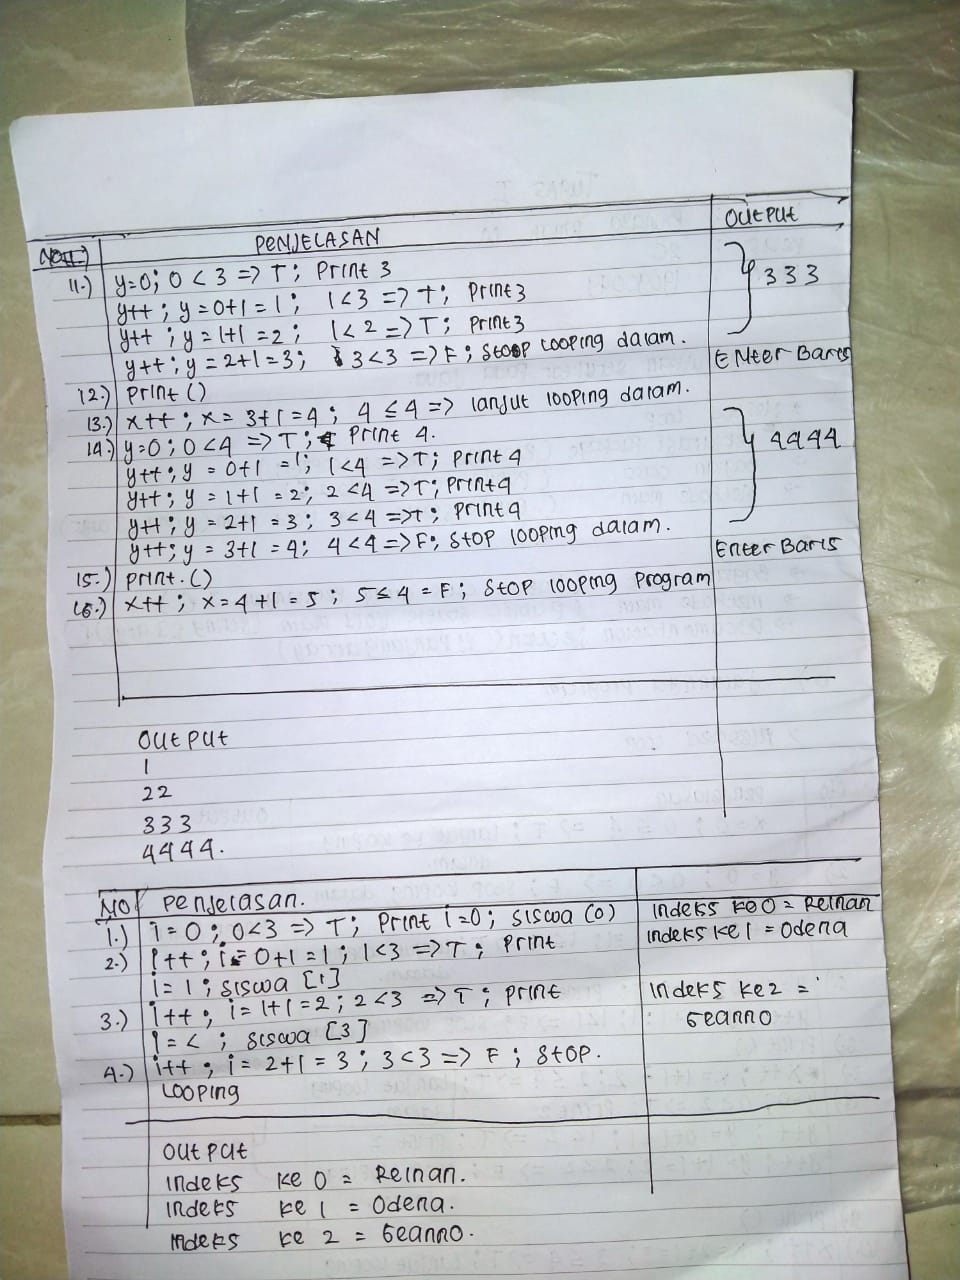 NO PENJELASAN OUTPUT
11.) y=0; 0 < 3 => T; Print 3
y++; y = 0+1 = 1; 1<3 => T; Print 3
y++; y = 1+1 = 2; 1< 2 => T; Print 3
333
y++; y = 2+1 = 3; 3<3 => F; Stoop Looping dalam.
12.) Print () ENter Baris
13.) x++; x = 3+1 = 4; 4 ≤ 4 => lanjut looping dalam.
14.) y=0; 0<4 => T; Print 4.
y++; y = 0+1 = 1; 1<4 => T; Print 4
y++; y = 1+1 = 2; 2 <4 => T; Print 4
y++; y = 2+1 = 3; 3<4 => T; Print 4
4444
y++; y = 3+1 = 4; 4<4 => F; Stop looping dalam.
15.) Print. () Enter Baris
16.) x++; x=4+1=5; 5≤4 = F; Stop looping Program
OUTPUT
1
22
333
4444.
NO Penjelasan.
1.) i = 0; 0<3 => T; Print i=0; siswa (0) Indeks ke 0 = Reinan
2.) i++; i= 0+1 = 1; 1<3 => T; Print Indeks ke 1 = Odena
i = 1; siswa [1]
3.) i++; i = 1+1 = 2; 2<3 => T; Print Indeks ke 2 =
i = <; siswa [3] Geanno
4.) i++; i = 2+1 = 3; 3<3 => F; Stop.
Looping
OUTPUT
Indeks ke 0 = Reinan.
Indeks ke 1 = Odena.
Indeks ke 2 = Geanno.